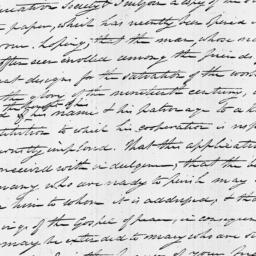 Society I indulge a copy of the
paper, which has recently been opened
hoping, that the man whose na
often seen enrolled among the friends
eat designs for the salvation of the worl
the glory of the nineteenth century,
the support of
of his name & his patronage to a
stitution to which his cooperation is resp
ently implored. That this application
received with indulgence; that the
many who are ready to perish may
him to whom it is addressed; & th
ing of the Gospel of peace, in consequen
may be extended to many who are
of your